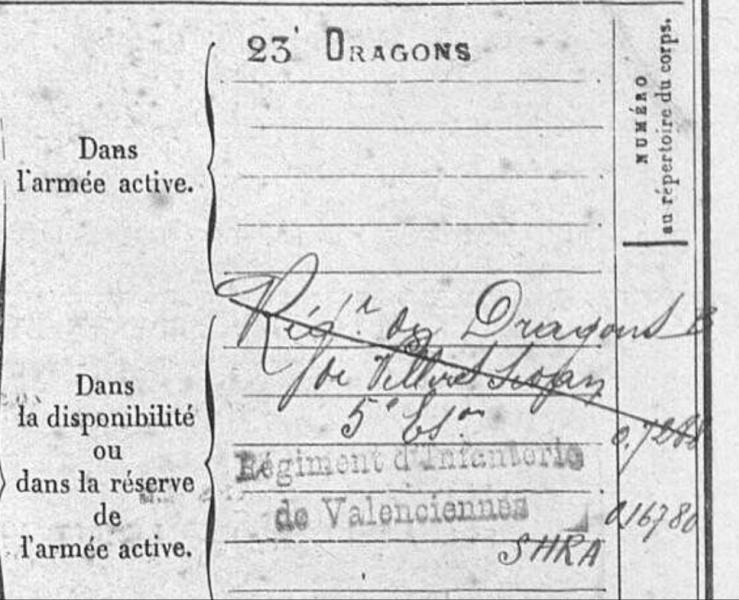 23e DRAGONS
NUMÉRO
au répertoire du corps.
Dans
l'armée active.
Régt de Dragons
de
5e Eson
Dans
la disponibilité
ou
dans la réserve
de
l'armée active.
Régiment d'Infanterie
de Valenciennes
016780
SHRA